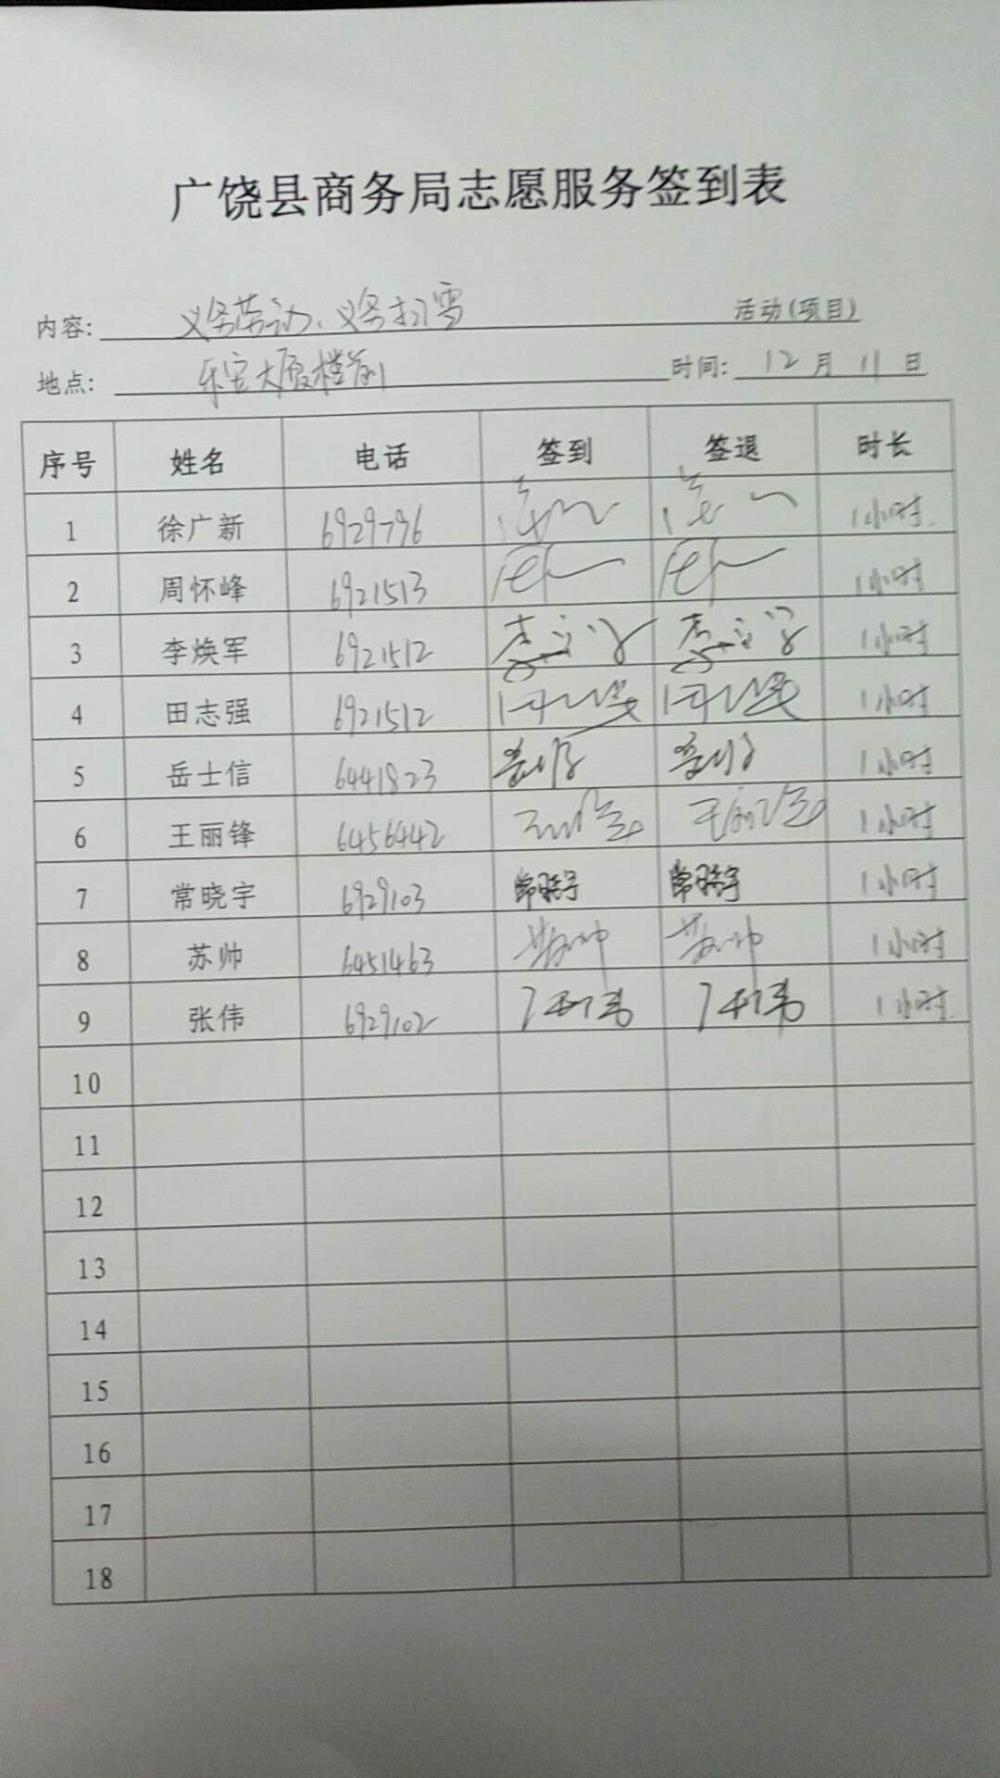 广饶县商务局志愿服务签到表
内容: 义务劳动、义务扫雪 活动(项目)
地点: 乐安大厦楼前 时间: 12月11日
序号 姓名 电话 签到 签退 时长
1 徐广新 6929796 1小时
2 周怀峰 6921513 1小时
3 李焕军 6921512 1小时
4 田志强 6921512 1小时
5 岳士信 6441823 1小时
6 王丽锋 6456442 1小时
7 常晓宇 6929103 常晓宇 常晓宇 1小时
8 苏帅 6451463 苏帅 苏帅 1小时
9 张伟 6929102 张伟 张伟 1小时
10
11
12
13
14
15
16
17
18